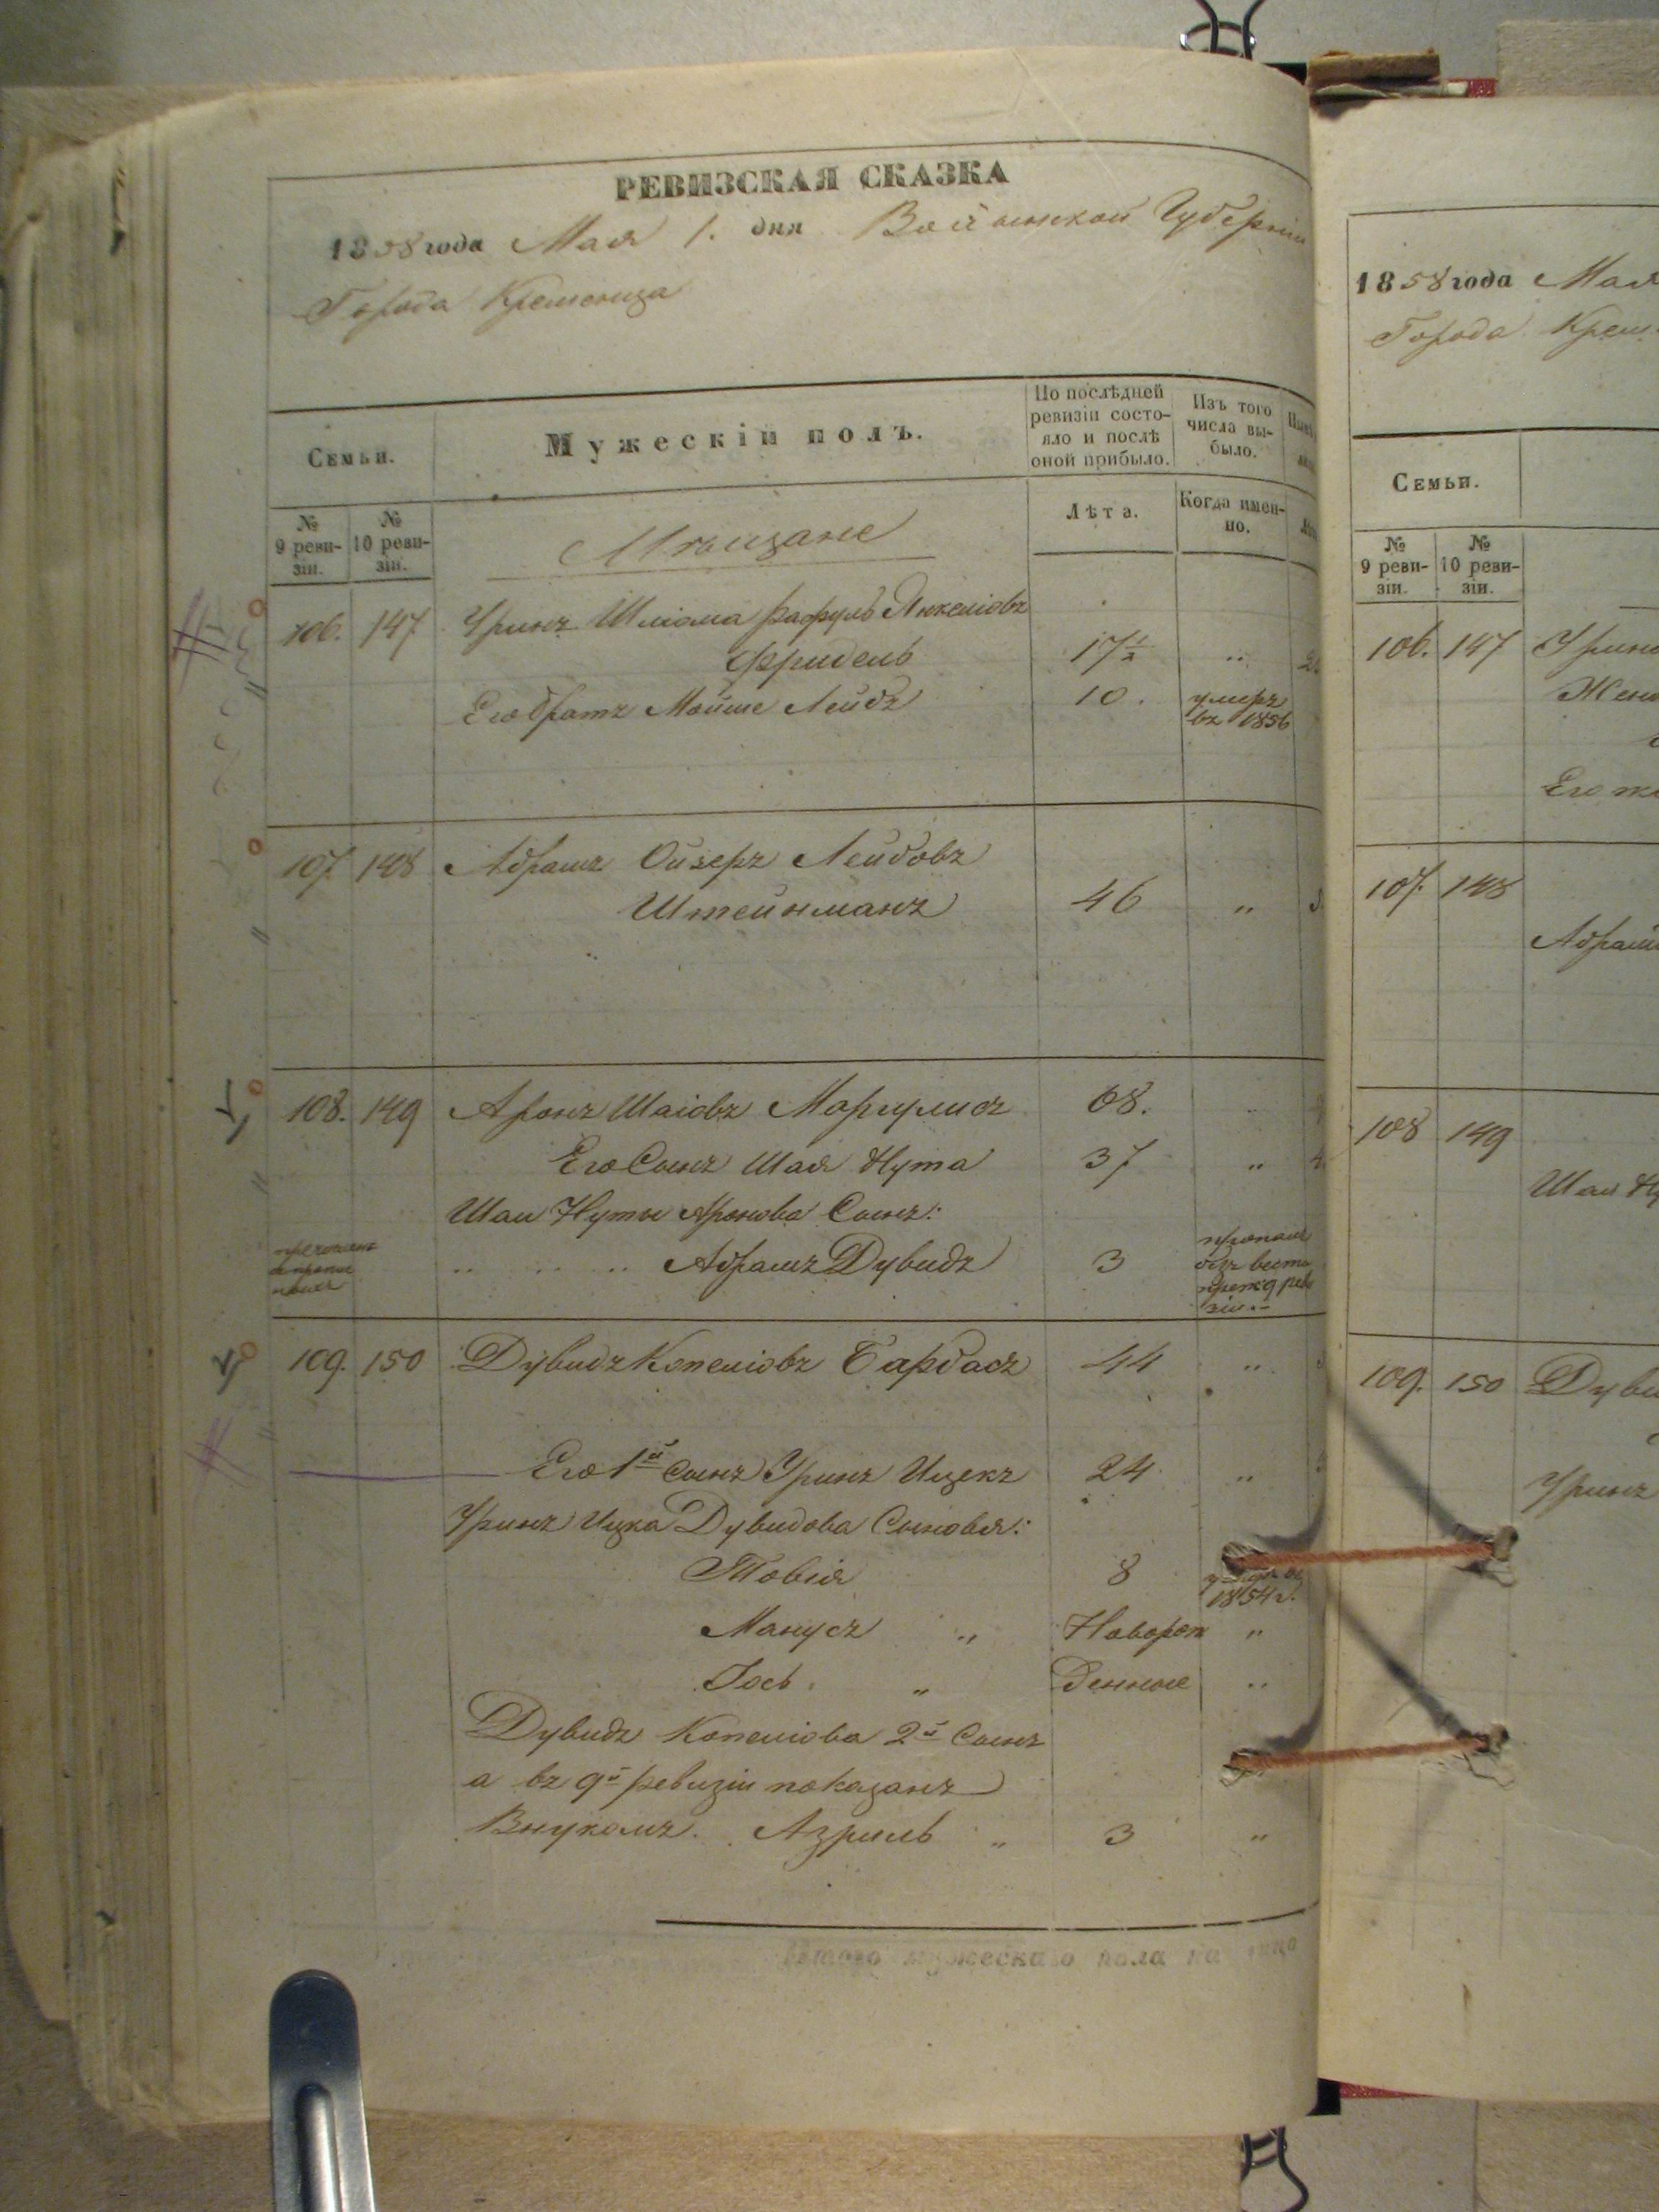 РЕВИЗСКАЯ СКАЗКА
1858 года Мая 1. дня Волынской Губерніи
Города Кременца
Семьи.
Мужескій полъ.
По послѣдней ревизіи состо-
яло и послѣ
оной прибыло.
Изъ того
числа вы-
было.
№
9 реви-
зіи.
№
10 реви-
зіи.
Лѣта.
Когда имен-
но.
Мѣщане
106. 147 Уринъ Шліома Рафуль Янкеліовъ
Фридель 17½ "
Его братъ Мойше Лейбъ 10. умеръ
въ 1856
107. 148 Абрамъ Ойзеръ Лейбовъ
Штейнманъ 46 "
108. 149 Аронъ Шаіовъ Маргулисъ 68. "
Его Сынъ Шая Нута 37 "
Шаи Нуты Аронова Сынъ:
" " " Абрамъ Дувидъ 3 пропалъ
безъ вести
109. 150 Дувидъ Копеліовъ Барбасъ 44 "
Его 1й Сынъ Уринъ Ицекъ 24 "
Уринъ Ицка Дувидова Сыновья:
Товія 8
1854 г.
Манусъ " Наворож "
Іось. " денные "
Дувидъ Копеліова 2й Сынъ
а въ 9й ревизіи показанъ
Внукомъ. Азриль " 3 "
Итого мужескаго пола на лицо
1858 года Мая
Города Крем.
Семьи.
№
9 реви-
зіи.
№
10 реви-
зіи.
106. 147 Урина
Жена
Его же
107. 148
Абрам
108 149
Шаи Ну
109. 150 Дуви
Уринъ